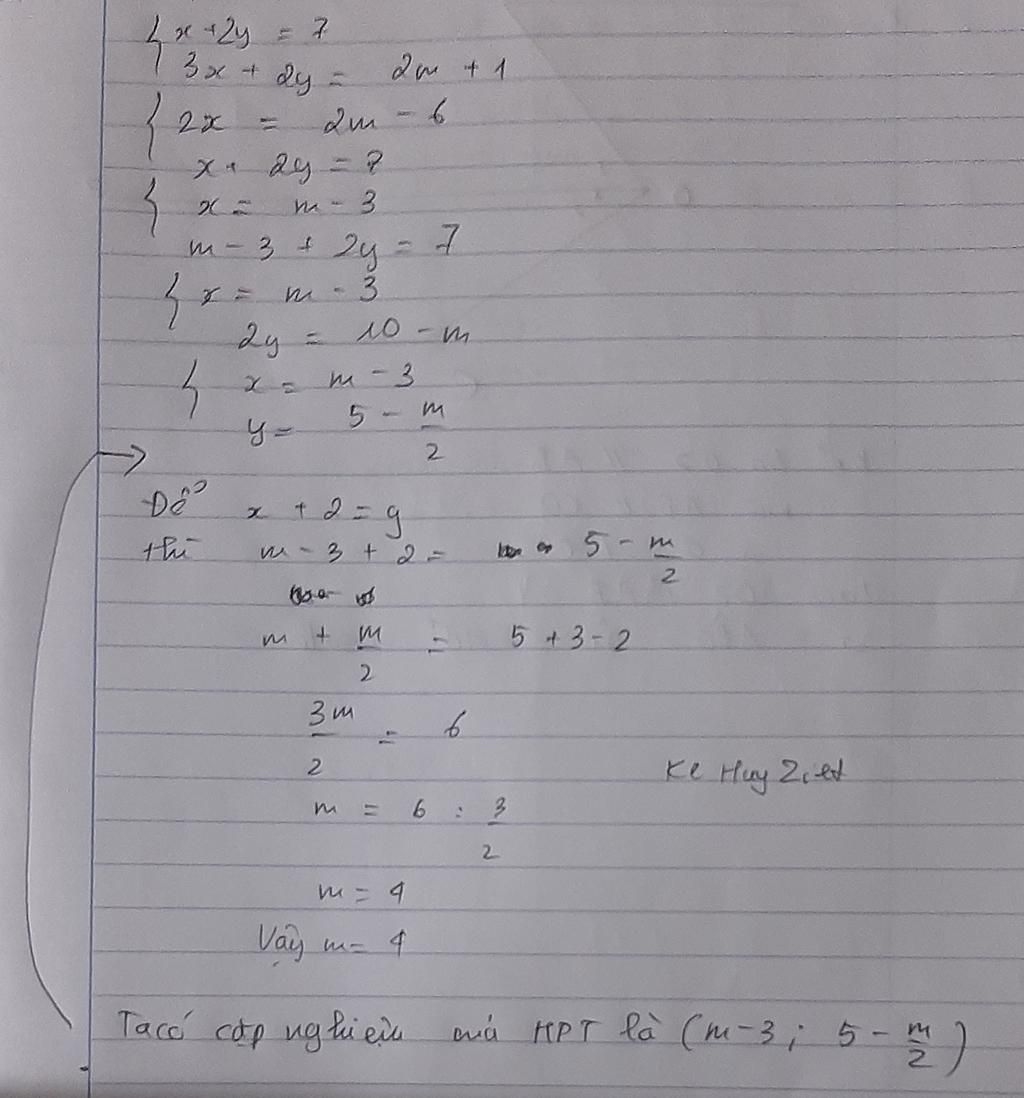 { x + 2y = 7
3x + 2y = 2m + 1
{ 2x = 2m - 6
x + 2y = 7
{ x = m - 3
m - 3 + 2y = 7
{ x = m - 3
2y = 10 - m
{ x = m - 3
y = 5 - m/2
Để x + 2 = y
thì m - 3 + 2 = 5 - m/2
m + m/2 = 5 + 3 - 2
3m/2 = 6
m = 6 : 3/2
m = 4
Vậy m = 4
Ta có cặp nghiệm của HPT là (m-3; 5 - m/2)